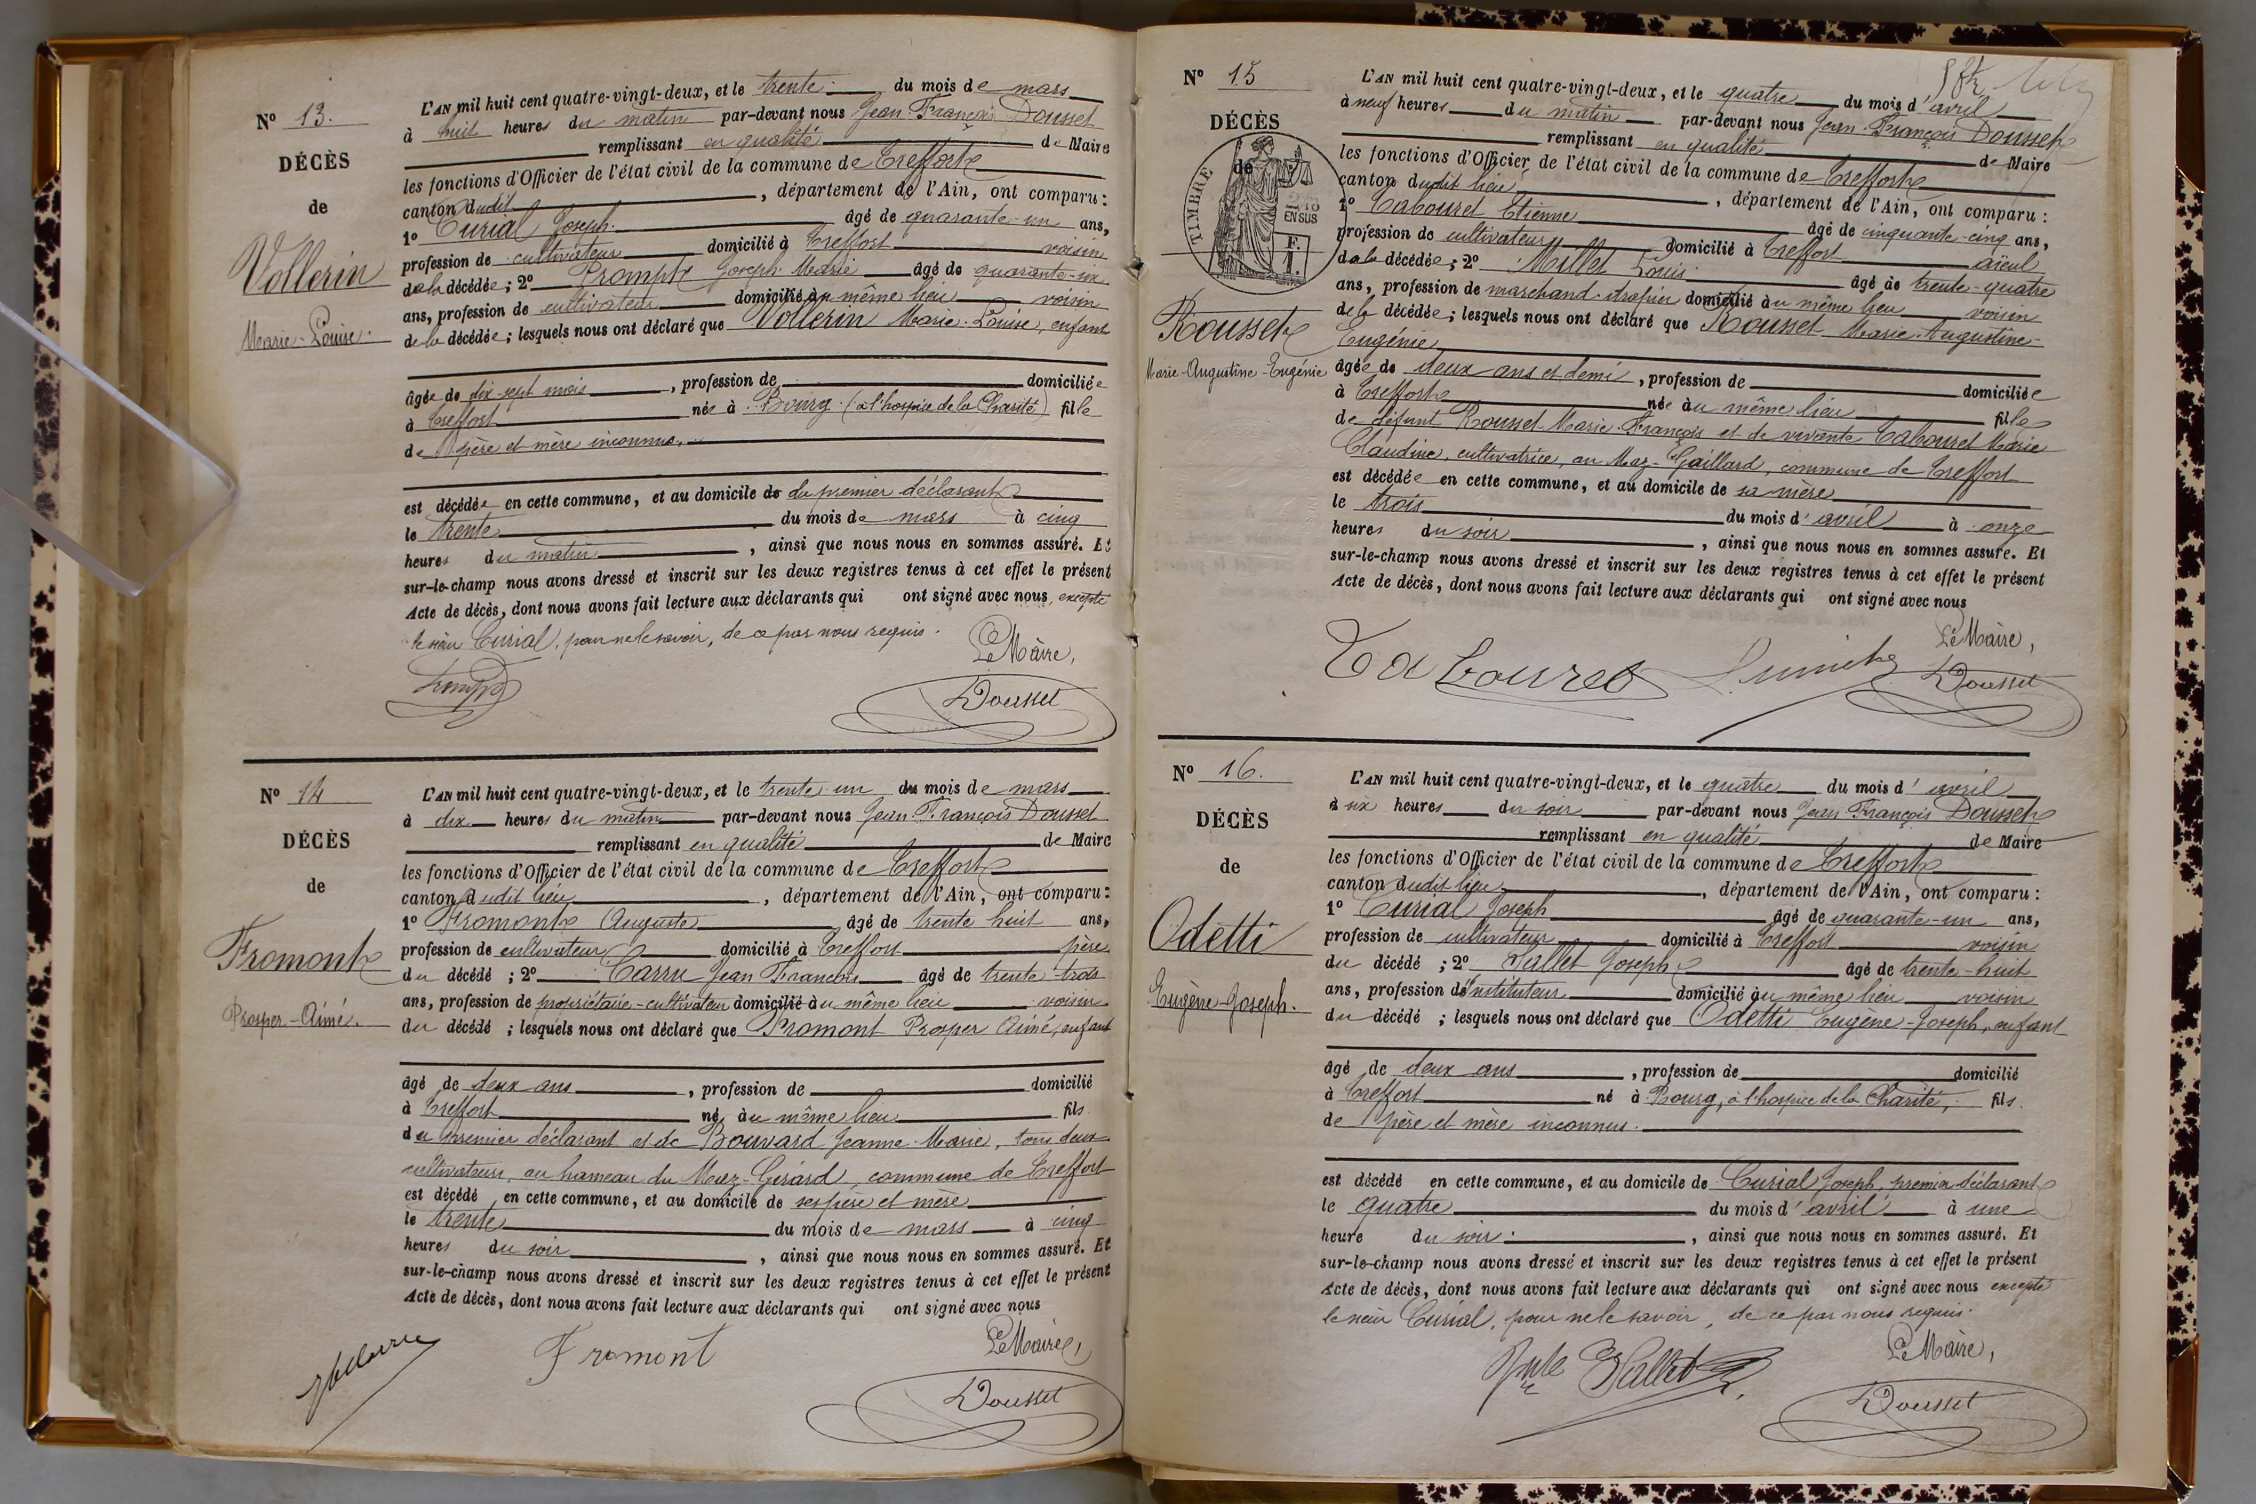 N° 13.
DÉCÈS
de
Vollerin
Marie-Louise.
L'AN mil huit cent quatre-vingt-deux, et le trente du mois de mars
à huit heures du matin par-devant nous Jean-François Dousset
remplissant en qualité de Maire
les fonctions d'Officier de l'état civil de la commune de Treffort
canton dudit , département de l'Ain, ont comparu :
1° Curial Joseph. âgé de quarante-un ans,
profession de cultivateur domicilié à Treffort voisin
de la décédée ; 2° Prompt Joseph Marie âgé de quarante-six
ans, profession de cultivateur domicilié au même lieu voisin
de la décédée ; lesquels nous ont déclaré que Vollerin Marie-Louise, enfant
âgée de dix-sept mois , profession de domiciliée
à Treffort née à Bourg (à l'hospice de la Charité) fille
de père et mère inconnus.
est décédée en cette commune, et au domicile de du premier déclarant
le trente du mois de mars à cinq
heures du matin , ainsi que nous nous en sommes assuré. Et
sur-le-champ nous avons dressé et inscrit sur les deux registres tenus à cet effet le présent
Acte de décès, dont nous avons fait lecture aux déclarants qui ont signé avec nous, excepté
le sieur Curial, pour ne le savoir, de ce par nous requis.
Le Maire,
Dousset
N° 14
DÉCÈS
de
Fromont
Prosper-Aimé.
L'AN mil huit cent quatre-vingt-deux, et le trente-un du mois de mars
à dix heures du matin par-devant nous Jean-François Dousset
remplissant en qualité de Maire
les fonctions d'Officier de l'état civil de la commune de Treffort
canton dudit lieu , département de l'Ain, ont comparu :
1° Fromont Auguste âgé de trente huit ans,
profession de cultivateur domicilié à Treffort père
du décédé ; 2° Carru Jean François âgé de trente-trois
ans, profession de propriétaire-cultivateur domicilié au même lieu voisin
du décédé ; lesquels nous ont déclaré que Fromont Prosper Aimé, enfant
âgé de deux ans , profession de domicilié
à Treffort né au même lieu fils
du premier déclarant et de Bouvard Jeanne-Marie, tous deux
cultivateurs, au hameau du Maz-Gérard, commune de Treffort
est décédé en cette commune, et au domicile de ses père et mère
le trente du mois de mars à cinq
heures du soir , ainsi que nous nous en sommes assuré. Et
sur-le-champ nous avons dressé et inscrit sur les deux registres tenus à cet effet le présent
Acte de décès, dont nous avons fait lecture aux déclarants qui ont signé avec nous
Le Maire,
Fromont
Dousset
N° 15
DÉCÈS
de
TIMBRE
EN SUS
F.
1.
Rousset
Marie-Augustine-Eugénie
L'AN mil huit cent quatre-vingt-deux, et le quatre du mois d'avril
à neuf heures du matin par-devant nous Jean-François Dousset
remplissant en qualité de Maire
les fonctions d'Officier de l'état civil de la commune de Treffort
canton dudit lieu , département de l'Ain, ont comparu :
1° Tabouret Etienne âgé de cinquante-cinq ans,
profession de cultivateur domicilié à Treffort aïeul
de la décédée ; 2° Millet Louis âgé de trente-quatre
ans, profession de marchand-drapier domicilié au même lieu voisin
de la décédée ; lesquels nous ont déclaré que Rousset Marie-Augustine-
Eugénie
âgée de deux ans et demi , profession de domiciliée
à Treffort née au même lieu fille
de défunt Rousset Marie-François et de vivante Tabouret Marie
Claudine, cultivatrice, au Maz-Gaillard, commune de Treffort
est décédée en cette commune, et au domicile de sa mère
le trois du mois d'avril à onze
heures du soir , ainsi que nous nous en sommes assuré. Et
sur-le-champ nous avons dressé et inscrit sur les deux registres tenus à cet effet le présent
Acte de décès, dont nous avons fait lecture aux déclarants qui ont signé avec nous
Le Maire,
Tabouret
Dousset
N° 16.
DÉCÈS
de
Odetti
Eugène-Joseph.
L'AN mil huit cent quatre-vingt-deux, et le quatre du mois d'avril
à six heures du soir par-devant nous Jean-François Dousset
remplissant en qualité de Maire
les fonctions d'Officier de l'état civil de la commune de Treffort
canton dudit lieu , département de l'Ain, ont comparu :
1° Curial Joseph âgé de quarante-un ans,
profession de cultivateur domicilié à Treffort voisin
du décédé ; 2° Sallet Joseph âgé de trente-huit
ans, profession d'instituteur domicilié au même lieu voisin
du décédé ; lesquels nous ont déclaré que Odetti Eugène-Joseph, enfant
âgé de deux ans , profession de domicilié
à Treffort né à Bourg, à l'hospice de la Charité, fils
de père et mère inconnus.
est décédé en cette commune, et au domicile de Curial Joseph, premier déclarant
le quatre du mois d'avril à une
heure du soir. , ainsi que nous nous en sommes assuré. Et
sur-le-champ nous avons dressé et inscrit sur les deux registres tenus à cet effet le présent
Acte de décès, dont nous avons fait lecture aux déclarants qui ont signé avec nous excepté
le sieur Curial, pour ne le savoir, de ce par nous requis.
Le Maire,
Sallet
Dousset